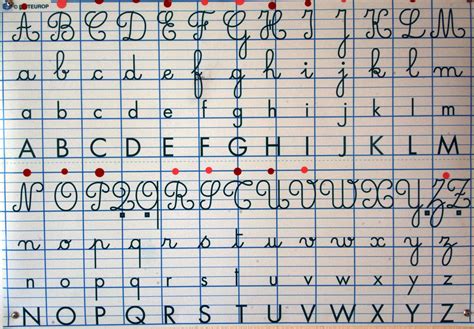 A B C D E F G H I J K L M
a b c d e f g h i j k l m
a b c d e f g h i j k l m
A B C D E F G H I J K L M
N O P 2 Q R S T U V W X Y Z Z
n o p q r s t u v w x y z
n o p q r s t u v w x y z
N O P Q R S T U V W X Y Z